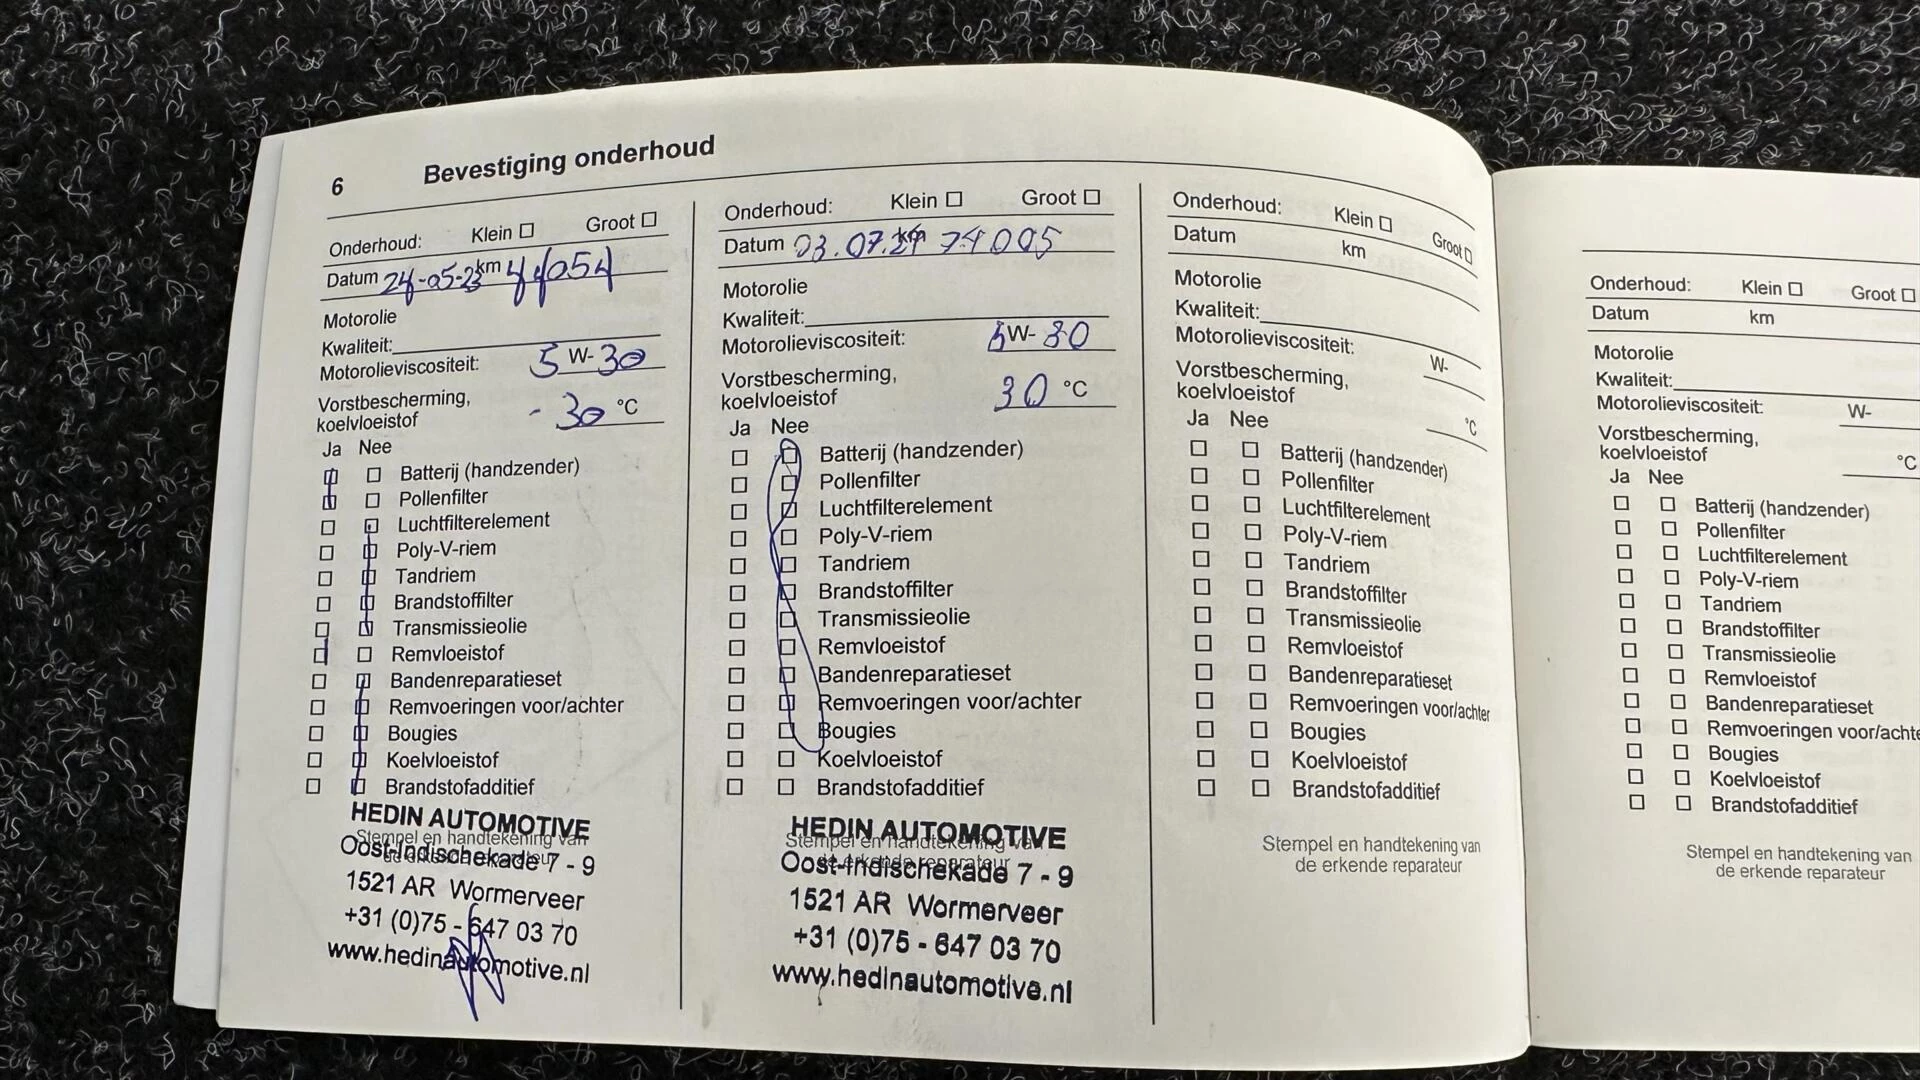 6 Bevestiging onderhoud
Onderhoud: Klein Groot
Datum 24-05-23 km 44054
Motorolie
Kwaliteit:
Motorolieviscositeit: 5 W- 30
Vorstbescherming,
koelvloeistof - 30 °C
Ja Nee
Batterij (handzender)
Pollenfilter
Luchtfilterelement
Poly-V-riem
Tandriem
Brandstoffilter
Transmissieolie
Remvloeistof
Bandenreparatieset
Remvoeringen voor/achter
Bougies
Koelvloeistof
Brandstofadditief
HEDIN AUTOMOTIVE
Stempel en handtekening van
de erkende reparateur
Oost-Indischekade 7 - 9
1521 AR Wormerveer
+31 (0)75 - 647 03 70
www.hedinautomotive.nl
Onderhoud: Klein Groot
Datum 03.07. km 74005
Motorolie
Kwaliteit:
Motorolieviscositeit: 5W- 30
Vorstbescherming,
koelvloeistof 30 °C
Ja Nee
Batterij (handzender)
Pollenfilter
Luchtfilterelement
Poly-V-riem
Tandriem
Brandstoffilter
Transmissieolie
Remvloeistof
Bandenreparatieset
Remvoeringen voor/achter
Bougies
Koelvloeistof
Brandstofadditief
HEDIN AUTOMOTIVE
Stempel en handtekening van
de erkende reparateur
Oost-Indischekade 7 - 9
1521 AR Wormerveer
+31 (0)75 - 647 03 70
www.hedinautomotive.nl
Onderhoud: Klein Groot
Datum km
Motorolie
Kwaliteit:
Motorolieviscositeit: W-
Vorstbescherming,
koelvloeistof °C
Ja Nee
Batterij (handzender)
Pollenfilter
Luchtfilterelement
Poly-V-riem
Tandriem
Brandstoffilter
Transmissieolie
Remvloeistof
Bandenreparatieset
Remvoeringen voor/achter
Bougies
Koelvloeistof
Brandstofadditief
Stempel en handtekening van
de erkende reparateur
Onderhoud: Klein Groot
Datum km
Motorolie
Kwaliteit:
Motorolieviscositeit: W-
Vorstbescherming,
koelvloeistof °C
Ja Nee
Batterij (handzender)
Pollenfilter
Luchtfilterelement
Poly-V-riem
Tandriem
Brandstoffilter
Transmissieolie
Remvloeistof
Bandenreparatieset
Remvoeringen voor/achte
Bougies
Koelvloeistof
Brandstofadditief
Stempel en handtekening van
de erkende reparateur